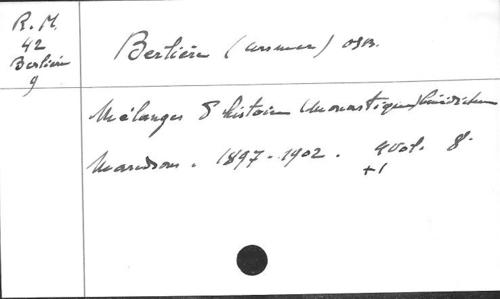 R. M.
42
Berlière
9
Berlière (Ursmer) OSB.
Mélanges d'histoire (Monastique) bénédictine
Maredsous. 1897-1902. 4 vol. 8°.
+1